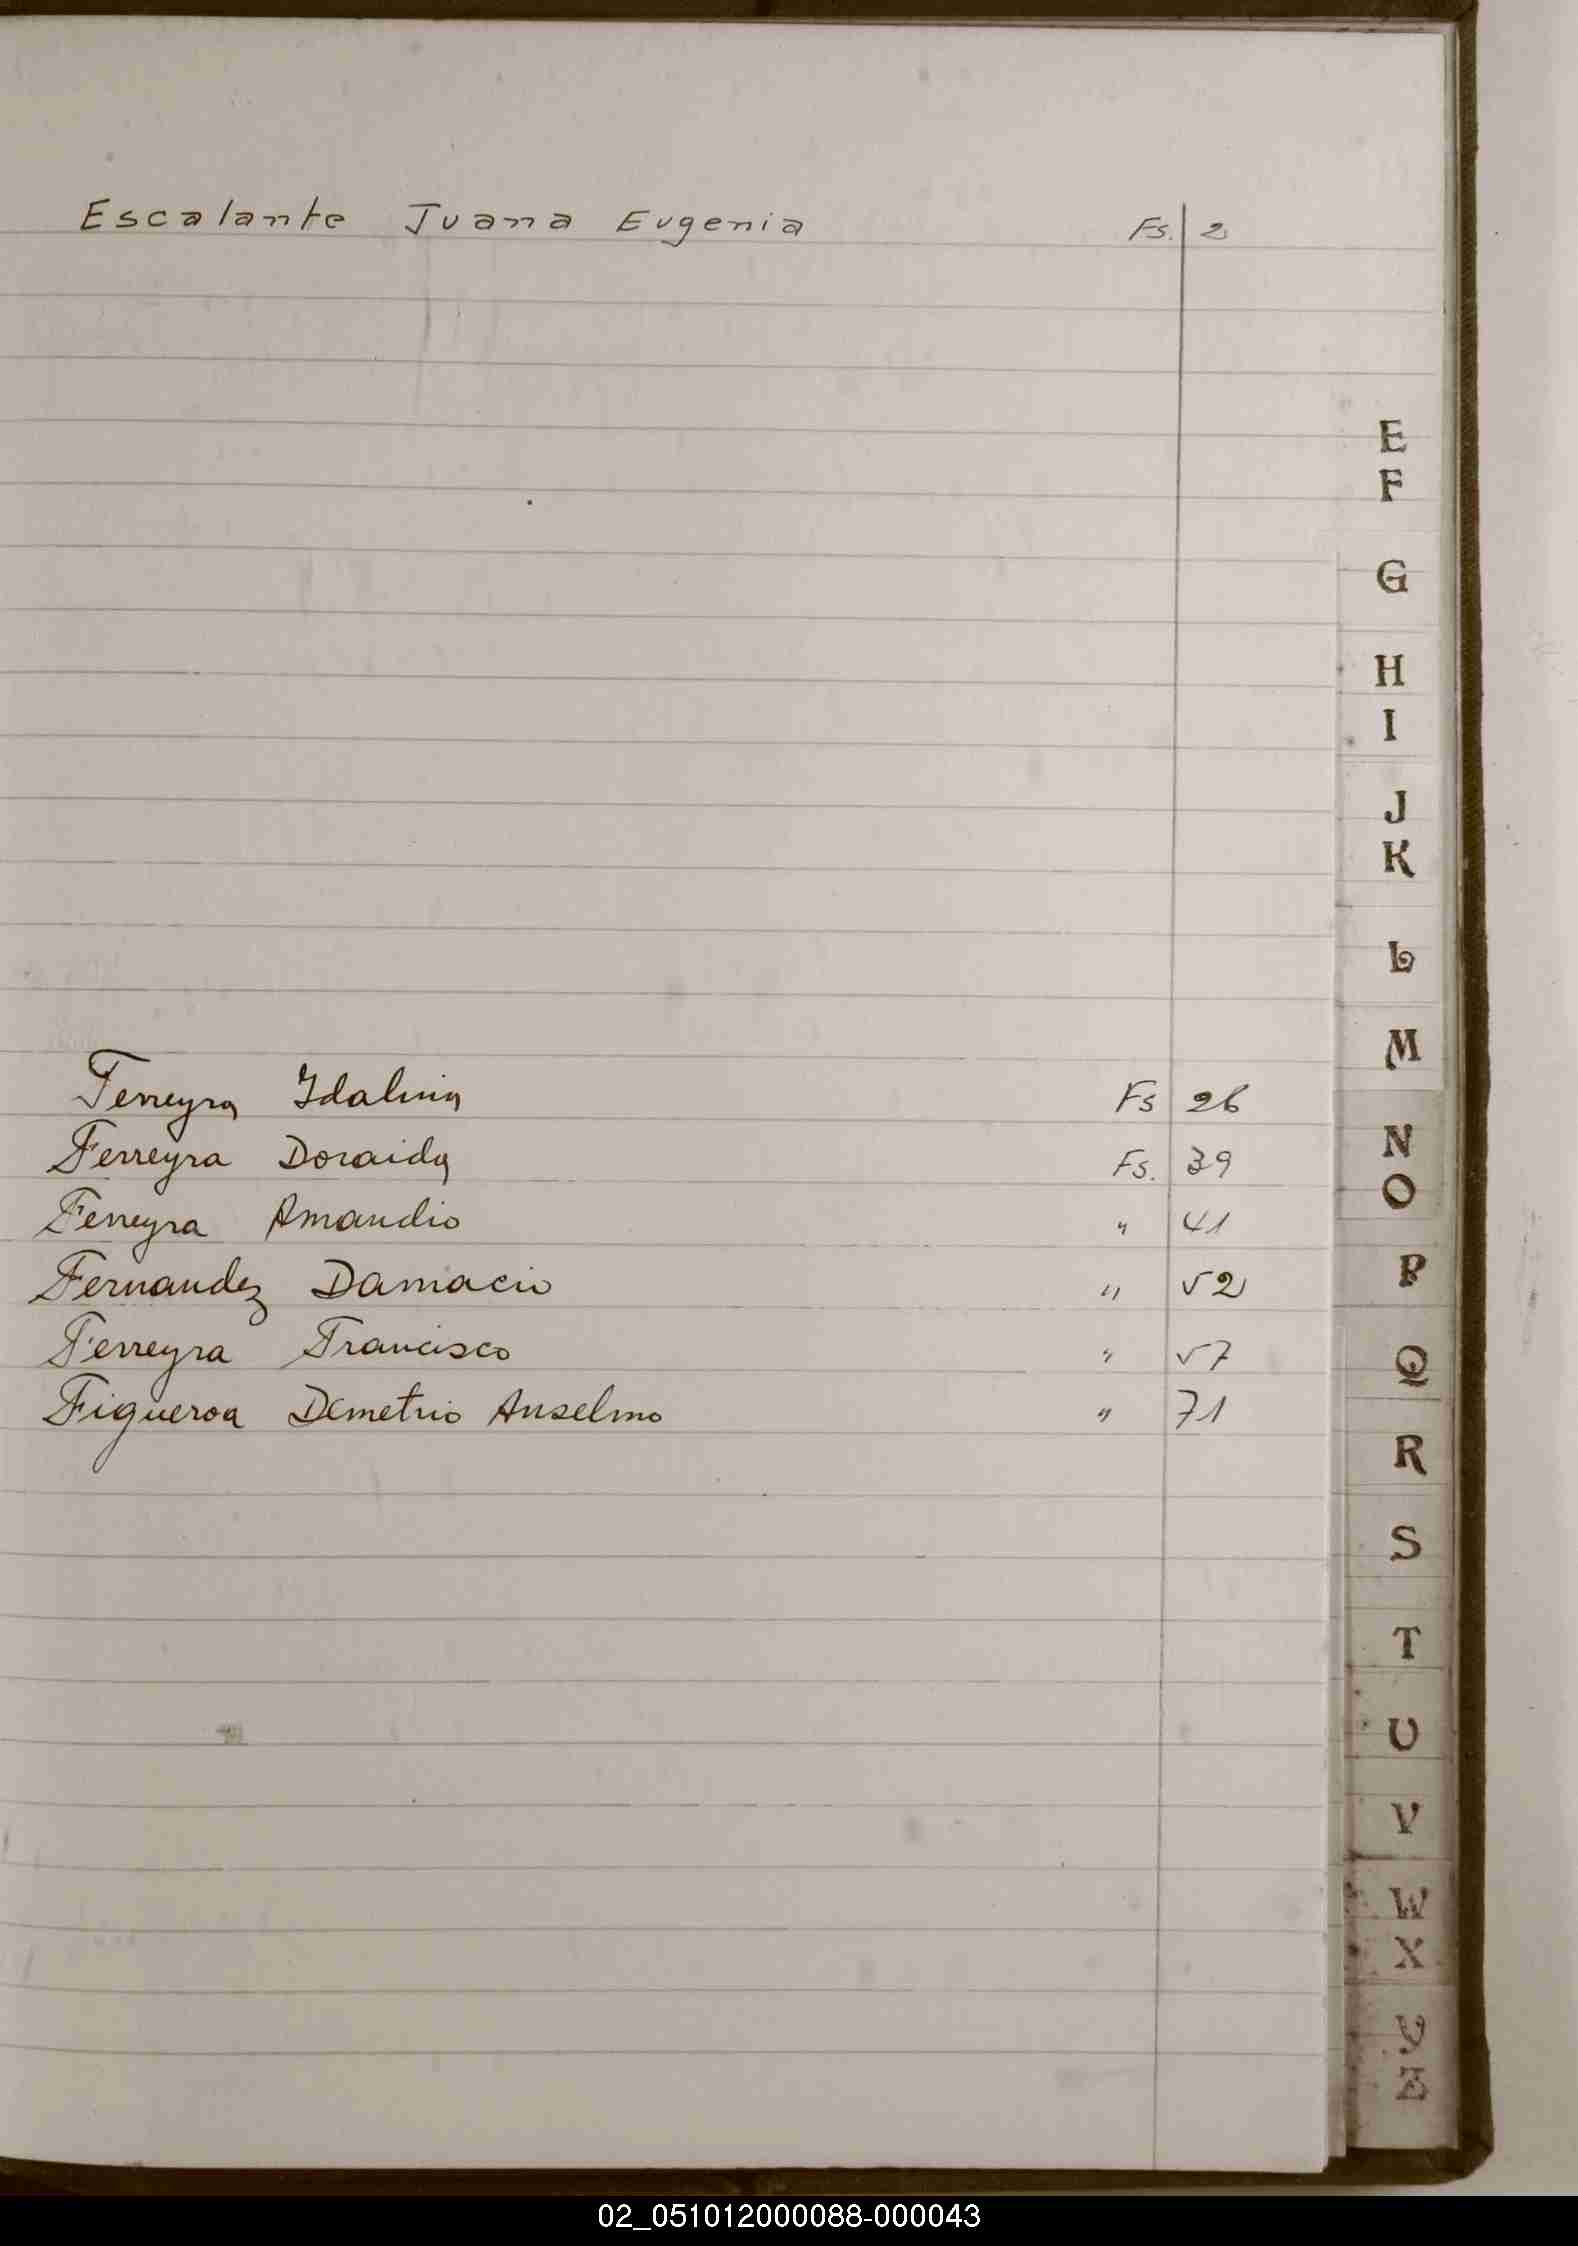 Escalante Juana Eugenia Fs. 2
E
F
G
H
I
J
K
L
M
Ferreyra Idalina Fs 26
Ferreyra Doraida Fs. 39
Ferreyra Amandio " 41
Fernandez Damacio " 52
Ferreyra Francisco " 57
Figueroa Demetrio Anselmo " 71
N
O
P
Q
R
S
T
U
V
W
X
Y
Z
02_051012000088-000043